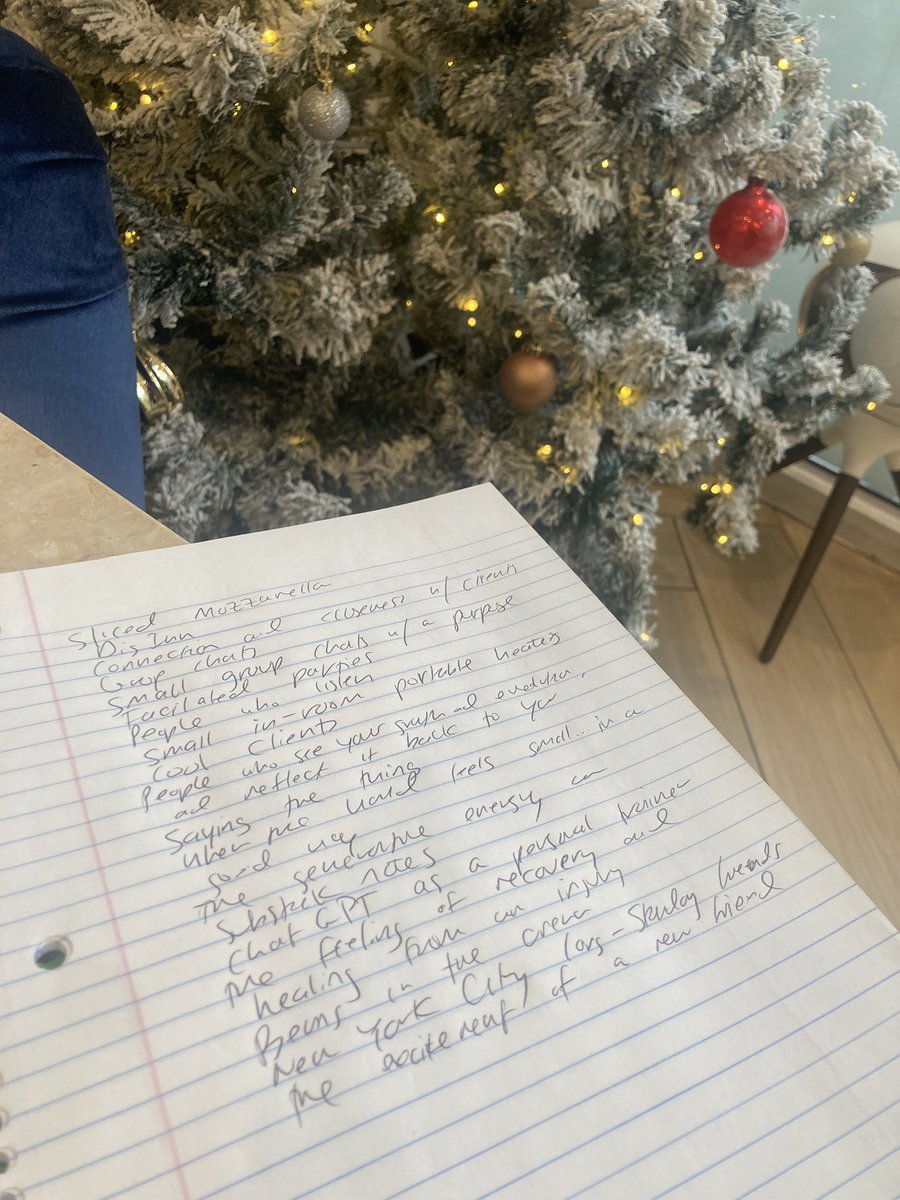 Sliced Mozzarella
Dis Inn
Connection and closeness w/ clients
Group chats
Small group chats w/ a purpose
Facilitated parties
People who listen
Small in-room portable heaters
Cool clients
People who see your growth and evolution,
and reflect it back to you
Saying the thing
When the world feels small... in a
good way
The generative energy on
Substack notes
Chat GPT as a personal trainer
The feeling of recovery and
healing from an injury
Being in the arena
New York City, long-standing friends
The excitement of a new friend